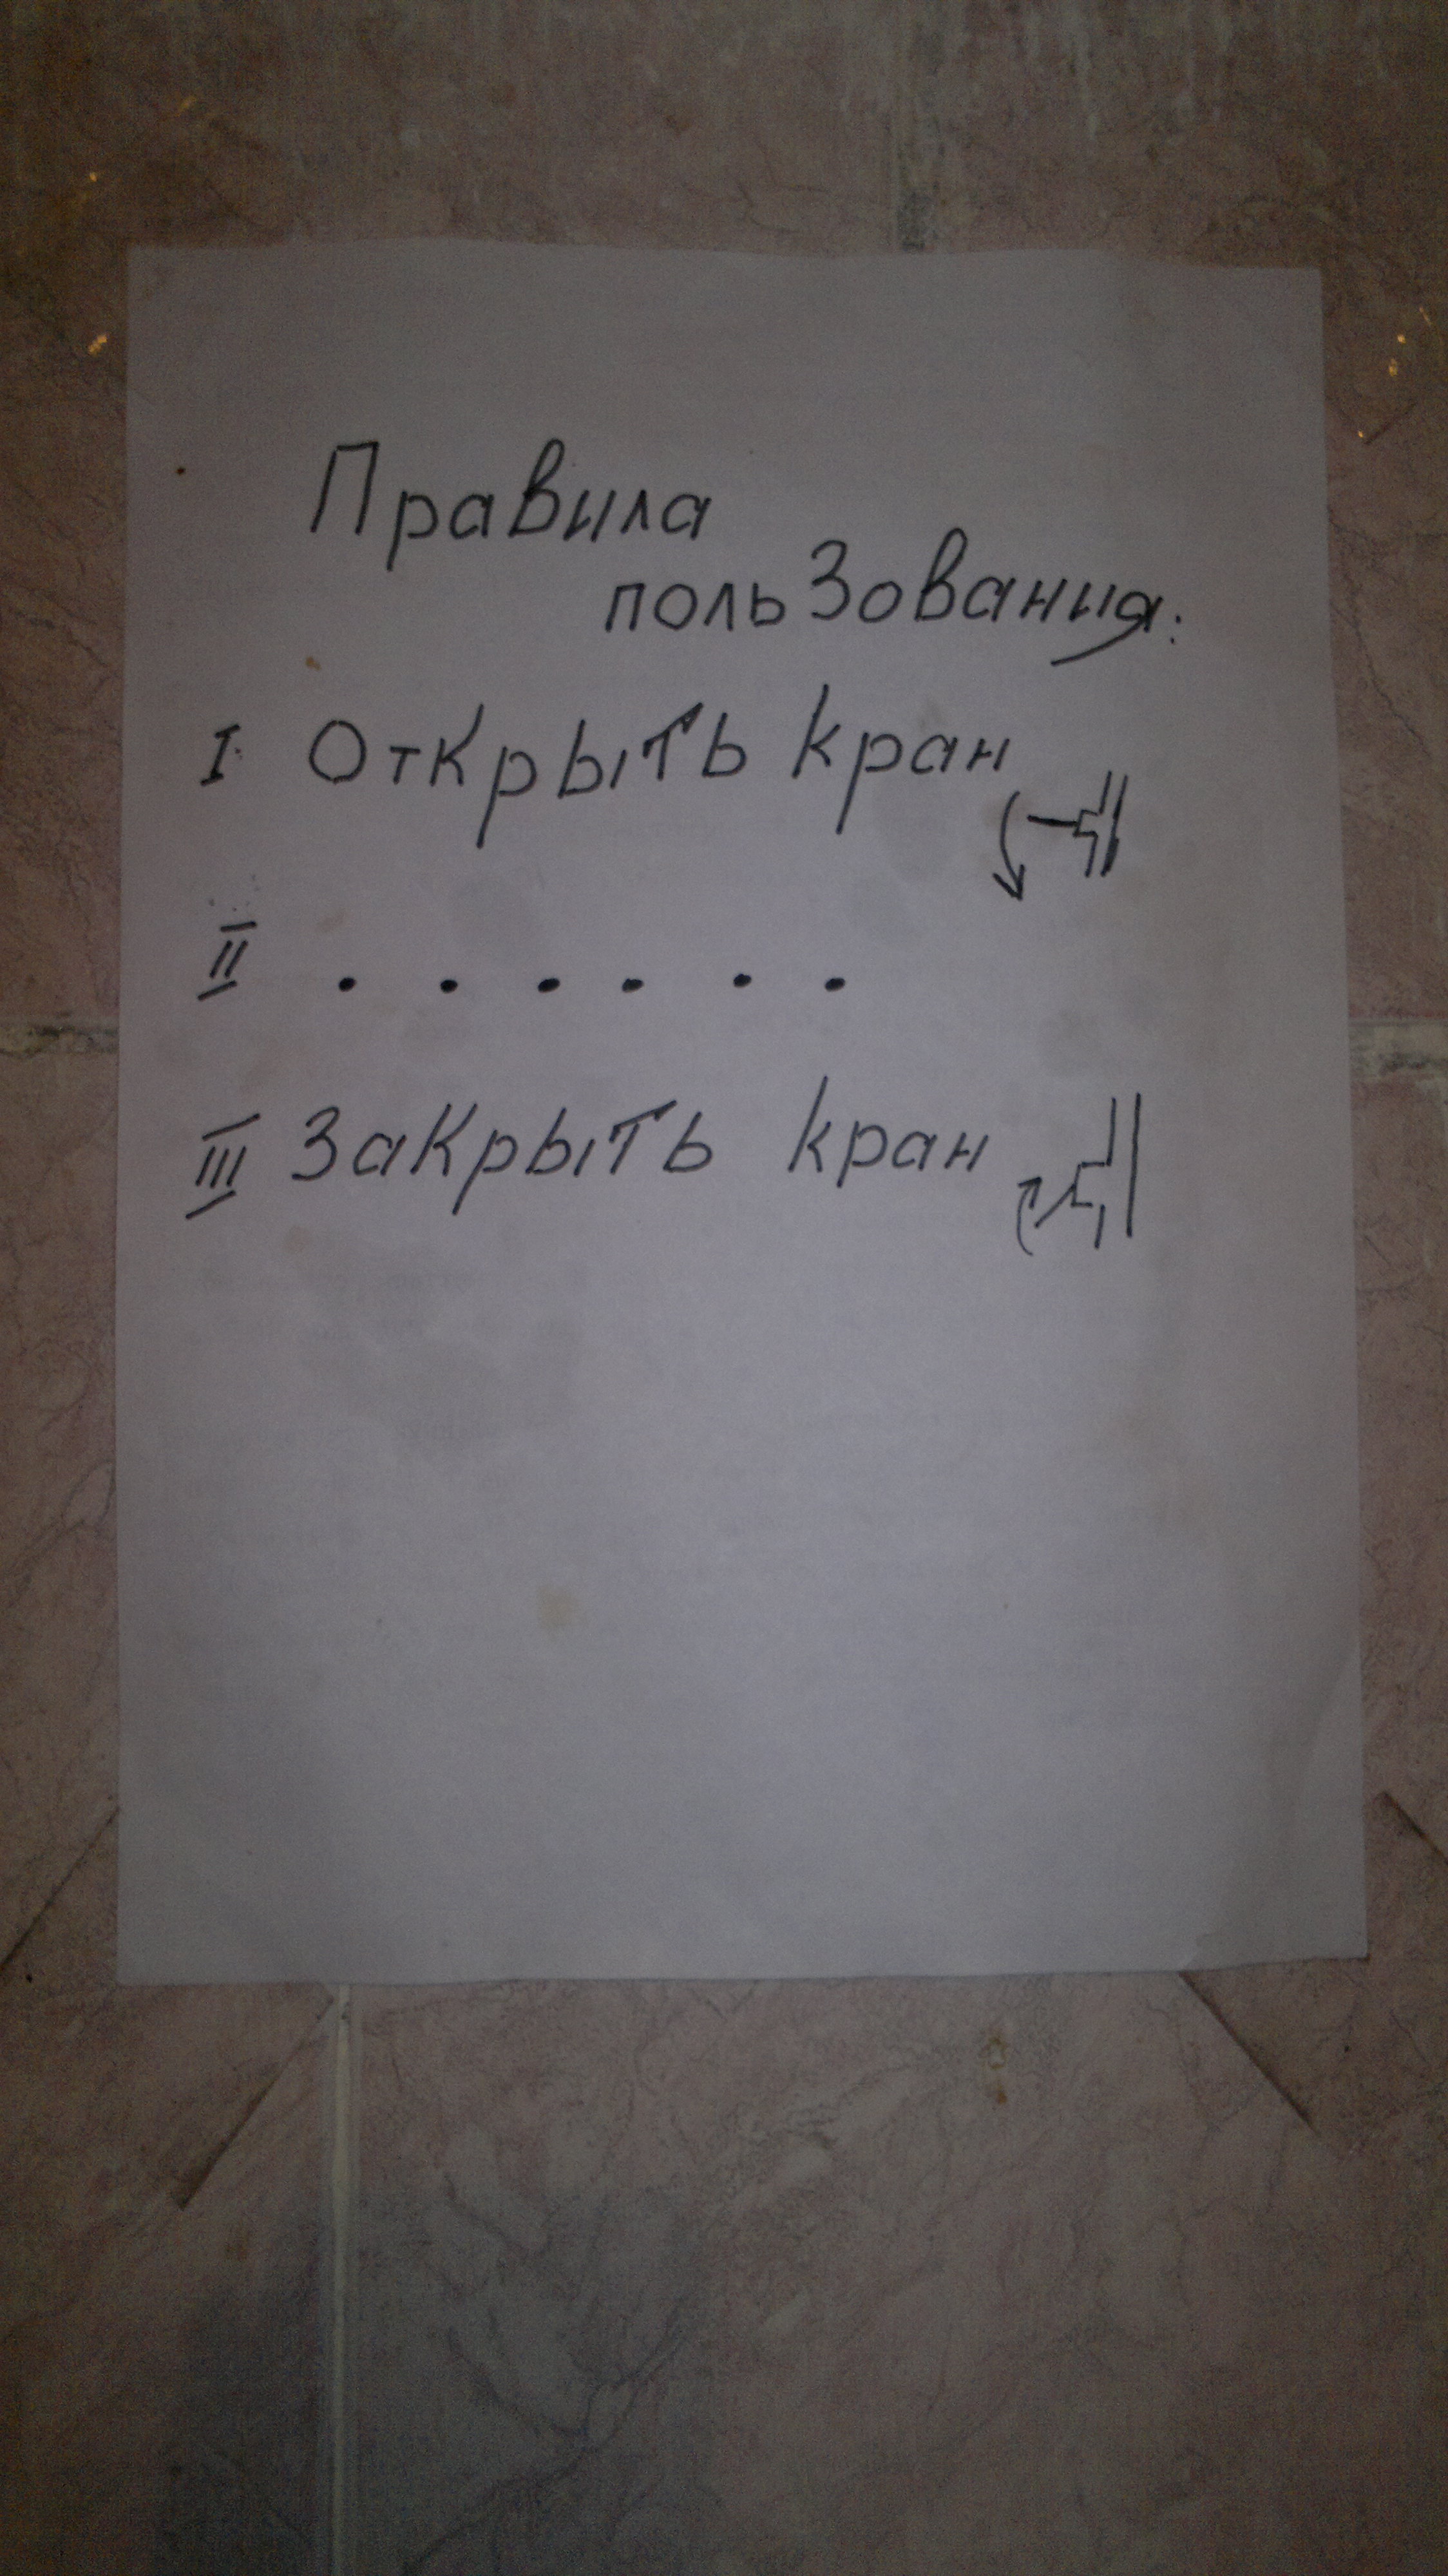 Правила
пользования:
I Открыть кран
II . . . . . .
III Закрыть кран